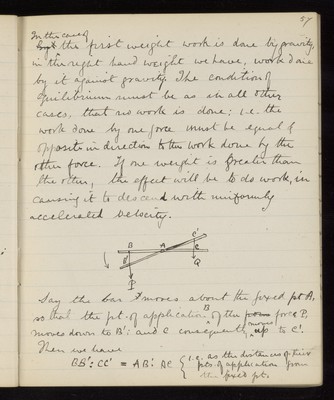 57
In the case of
the first weight work is done by gravity,
in the right hand weight we have, work done
by it against gravity. The condition of
equilibrium must be as in all other
cases, that no work is done; i.e. the
work done by one force must be equal &
opposite in direction to the work done by the
other force. If one weight is greater than
the other, the effect will be to do work, in
causing it to descend with uniformly
accelerated velocity.
B A C' C
B'
P Q
Say the bar moves about the fixed pt. A,
so that the pt. of application B of the force P,
moves down to B': and C consequently moves up to C'.
Then we have
BB' : CC' = AB : AC { i.e. as the distances of their
pts. of application from
the fixed pt.